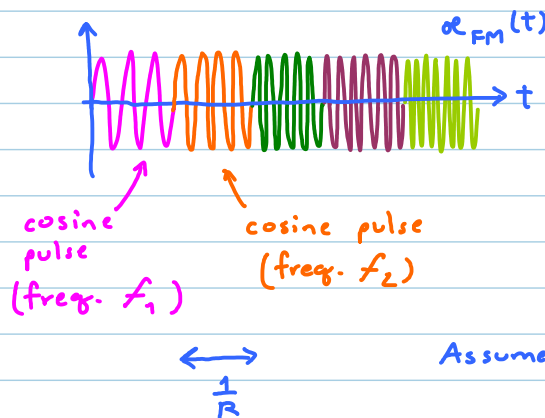 x_FM(t)
t
cosine
pulse
(freq. f_1)
cosine pulse
(freq. f_2)
1/R
Assume